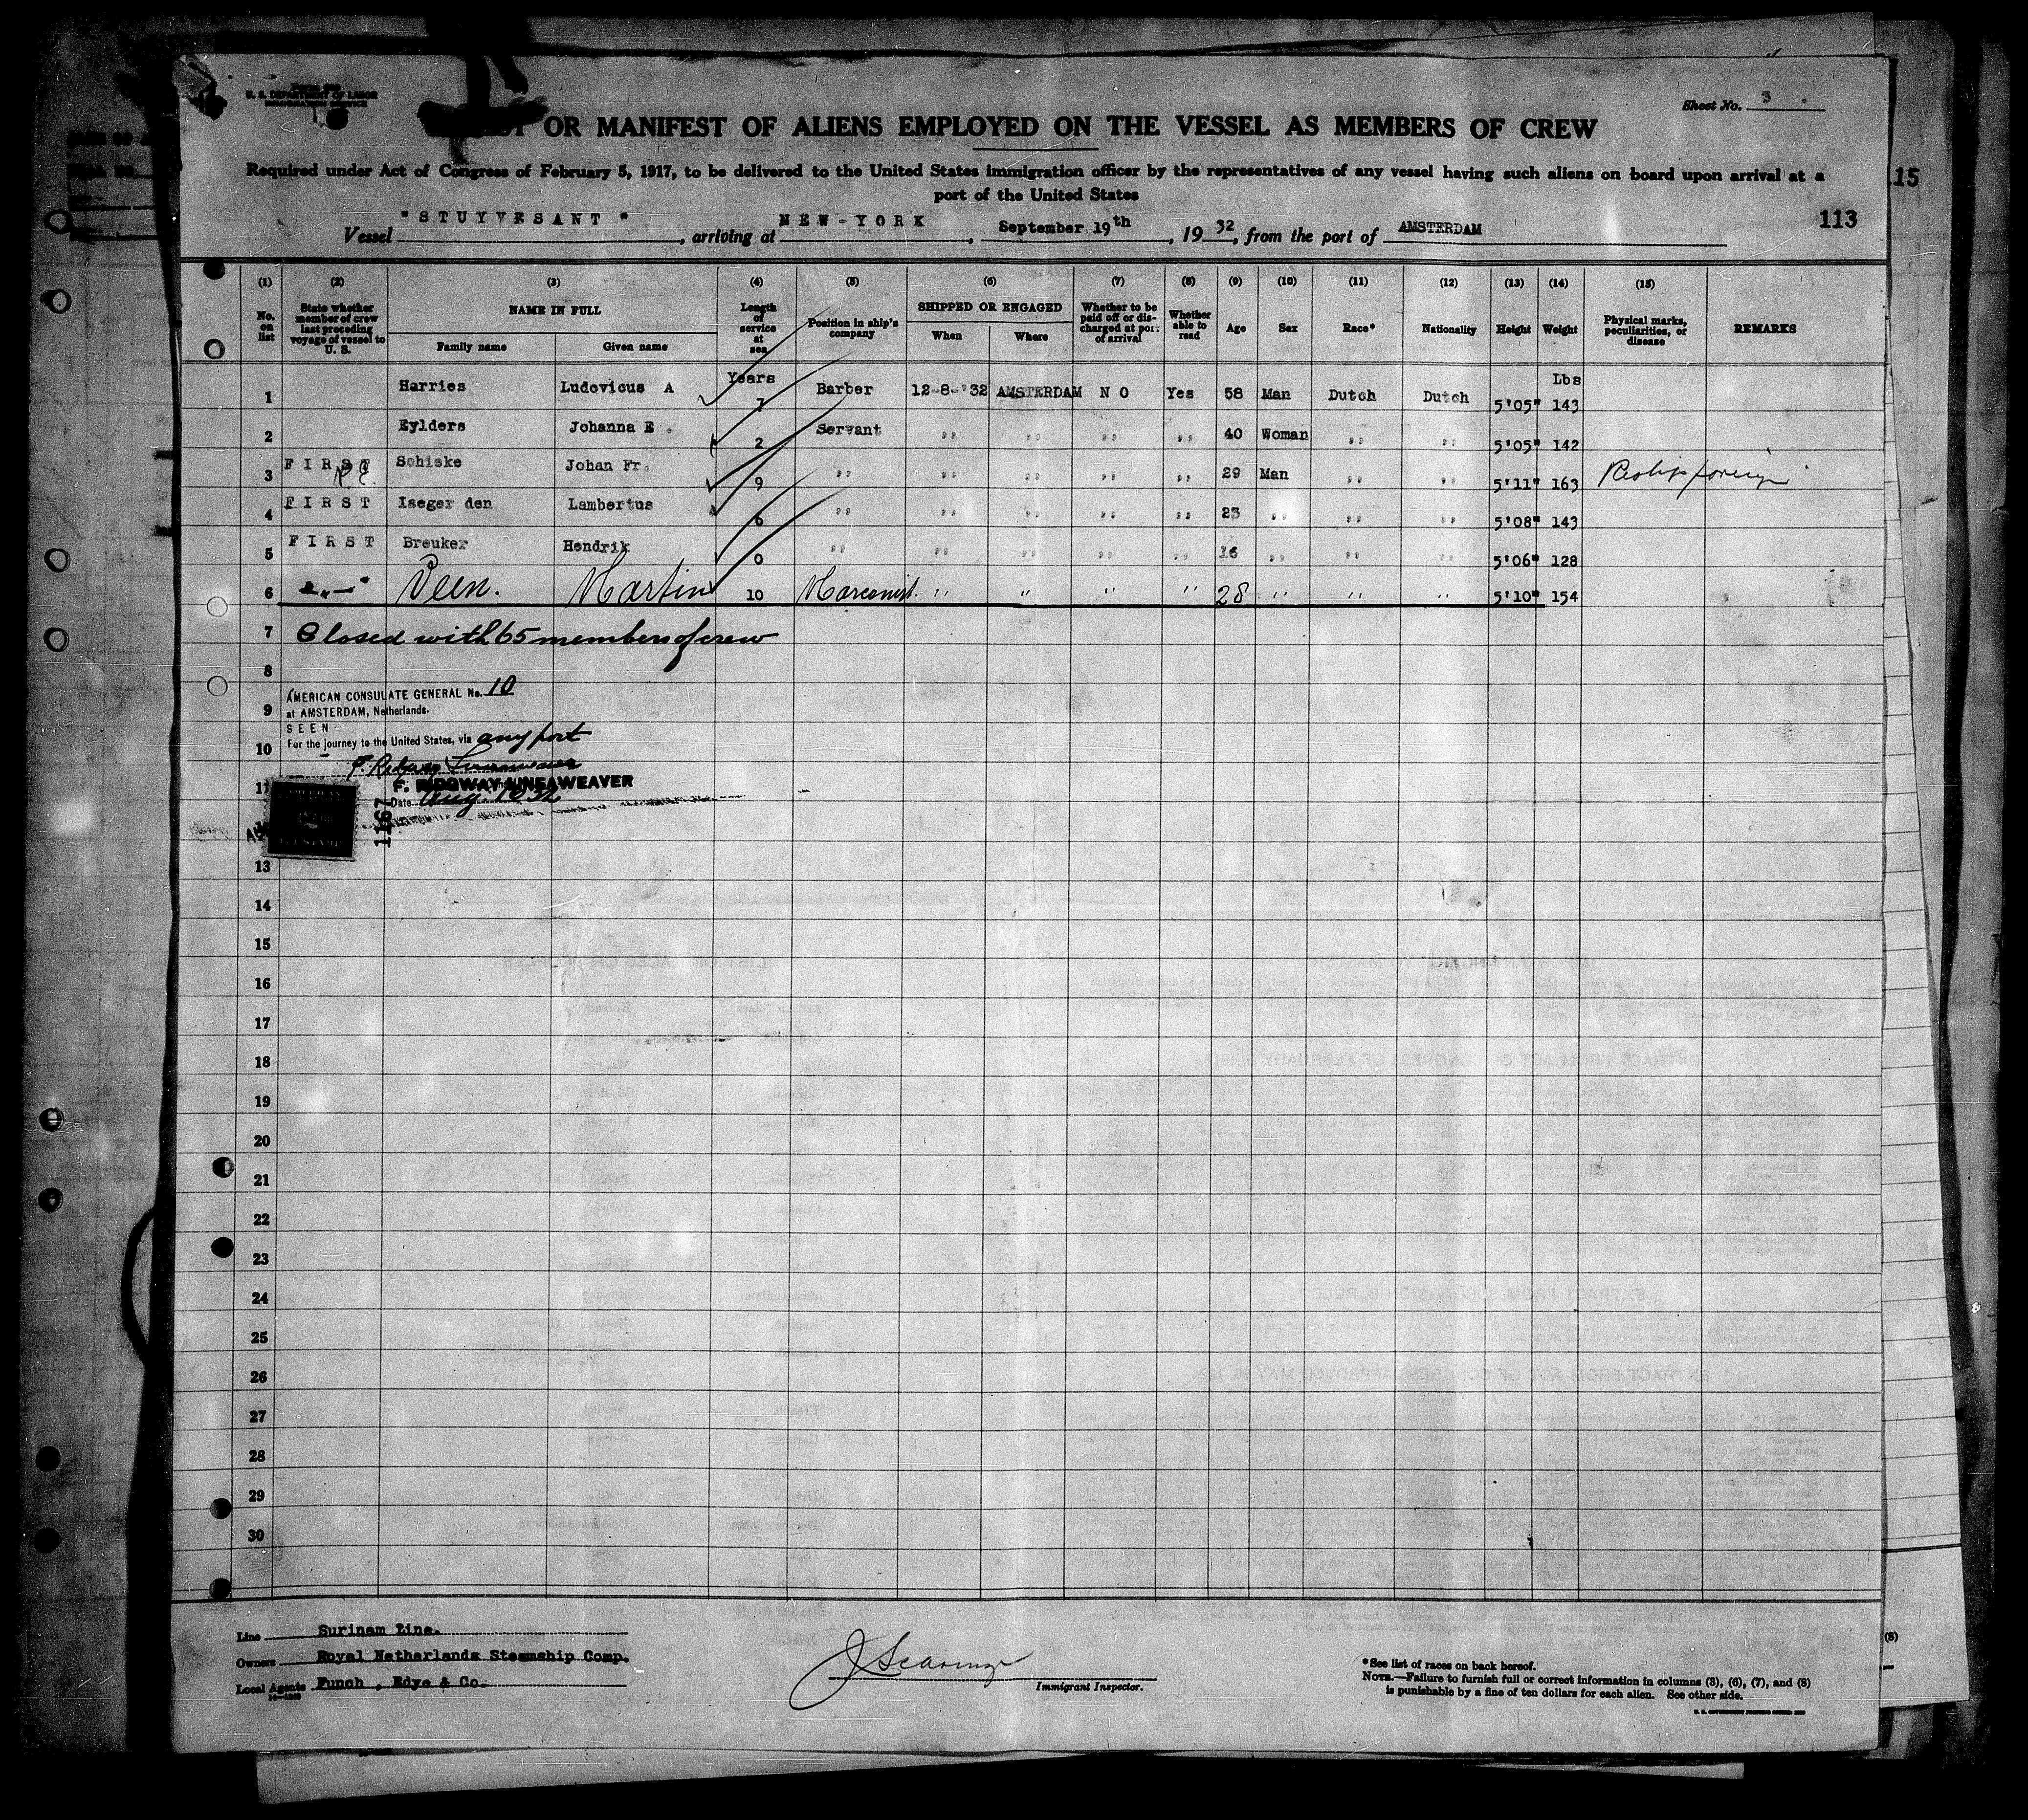 U. S. DEPARTMENT OF LABOR
IMMIGRATION SERVICE
Sheet No. 3
OR MANIFEST OF ALIENS EMPLOYED ON THE VESSEL AS MEMBERS OF CREW
Required under Act of Congress of February 5, 1917, to be delivered to the United States immigration officer by the representatives of any vessel having such aliens on board upon arrival at a
port of the United States
115
113
Vessel "STUYVESANT", arriving at NEW-YORK, September 19th, 1932, from the port of AMSTERDAM
(1) (2) (3) (4) (5) (6) (7) (8) (9) (10) (11) (12) (13) (14) (15)
No. on list
State whether member of crew last preceding voyage of vessel to U. S.
NAME IN FULL
Family name
Given name
Length of service at sea
Position in ship's company
SHIPPED OR ENGAGED
When
Where
Whether to be paid off or discharged at port of arrival
Whether able to read
Age
Sex
Race*
Nationality
Height
Weight
Physical marks, peculiarities, or disease
REMARKS
Years
Lbs
1 Harries Ludovicus A 7 Barber 12-8-'32 AMSTERDAM NO Yes 58 Man Dutch Dutch 5'05" 143
2 Eylders Johanna E. 2 Servant " " " " 40 Woman " " 5'05" 142
3 FIRST Schieke Johan Fr. 9 " " " " " 29 Man " " 5'11" 163
4 FIRST Iseger den Lambertus 6 " " " " " 23 " " " 5'08" 143
5 FIRST Breuker Hendrik 0 " " " " " 16 " " " 5'06" 128
6 -"- Veen. Martin 10 Marconist. " " " " 28 " " " 5'10" 154
7 Closed with 65 members of crew
8
AMERICAN CONSULATE GENERAL No. 10
9 at AMSTERDAM, Netherlands.
SEEN
10 For the journey to the United States, via any port
F. RIDGWAY LINEAWEAVER
Date
1167
13
14
15
16
17
18
19
20
21
22
23
24
25
26
27
28
29
30
Line Surinam Line.
Owners Royal Netherlands Steamship Comp.
Local Agents Funch, Edye & Co.
Immigrant Inspector.
*See list of races on back hereof.
NOTE.—Failure to furnish full or correct information in columns (3), (6), (7), and (8)
is punishable by a fine of ten dollars for each alien. See other side.
(8)